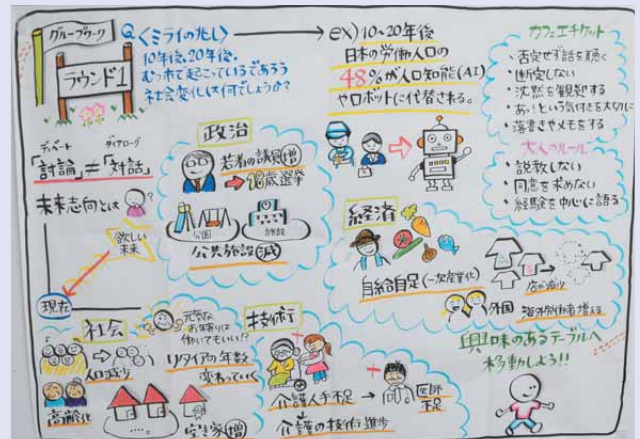 グループワーク
ラウンド1
Q〈ミライの兆し〉
10年後、20年後、
むつ市で起こっているであろう
社会変化は何でしょうか?
ex) 10~20年後
日本の労働人口の
48%が人口知能(AI)
やロボットに代替される。
カフェエチケット
・否定せず話を聴く
・断定しない
・沈黙を歓迎する
・あっ!という気付きを大切に
・落書きやメモをする
大人のルール
・説教しない
・同意を求めない
・経験を中心に語る
ディベート
ダイアローグ
「討論」≠「対話」
未来志向とは
?
欲しい
未来
現在
政治
若者の議員増
18歳選挙
公園
施設
公共施設 減
経済
自給自足(一次産業化)
店が減少
外国
海外労働者増える
社会
元気な
お年寄りは
働いてもいい!?
人口減少
リタイアの年数
変わっていく
高齢化
空き家 増
技術
介護人手不足
医師
不足
介護の技術進歩
興味のあるテーブルへ
移動しよう!!